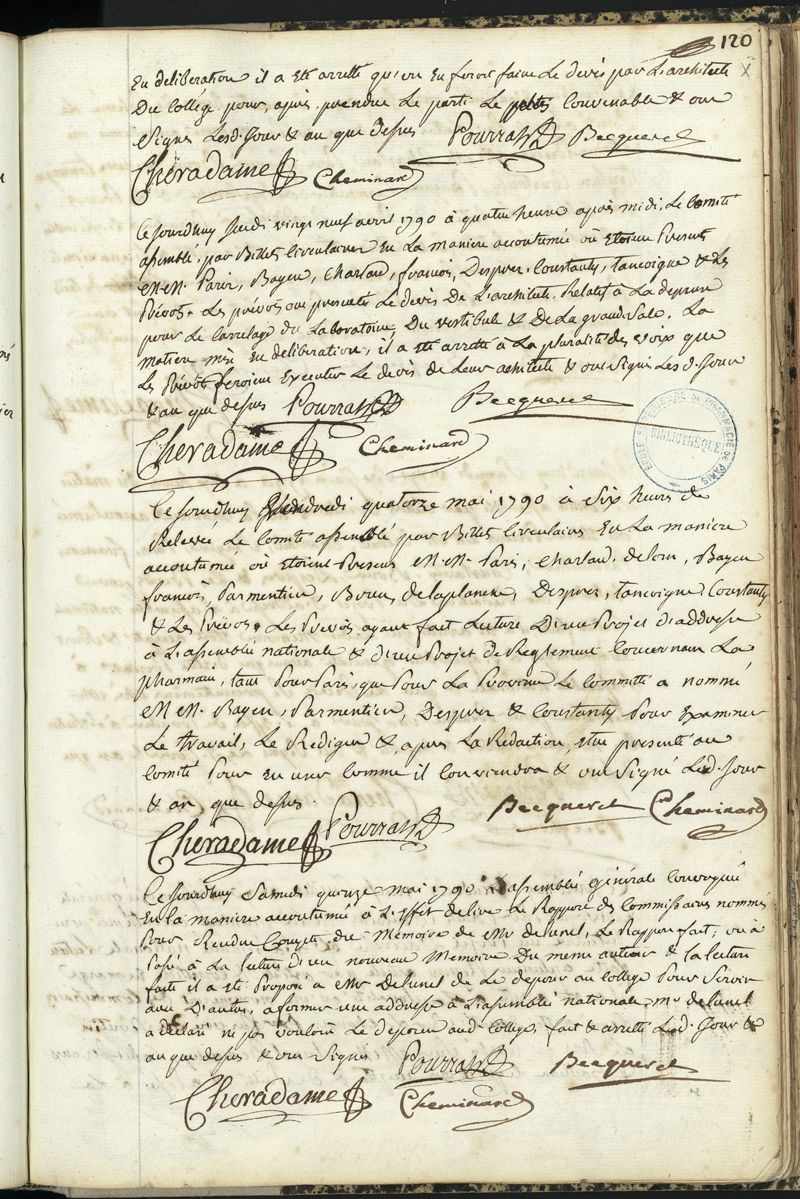 120
En deliberation il a été arretté qu'on en feroit faire Le devis par L'architecte
Du Collége pour, après, prendre Le parti Le convenable & ont
Signés Lesd. Jour & an que dessus Pourrat Becqueret
Cheradame Cheminard
Ce jourdhuy Jeudi vingt neuf avril 1790 à quatre heure après midi, Le Comité
assemblé, par Billets Circulaires En La maniere accoutumée où Etoient Presents
MM. Paris, Bayen, Charlard, francois, Desprez, Constanty, tancoigne & Les
Prévots. Les prévots ont presentés Le devis De L'architecte Relatif à La depense
pour Le Carrelage du Laboratoire Du vertibule & De La grande Sale. La
matiere mise En deliberation, il a été arretté à La pluralité des voix que
Les Prévôts feroient Executer Le devis de Leur achitecte & ont Signés Les d. Jour
& an que dessus Pourrat Becqueret
Cheradame Cheminard
ECOLE SUPERIEURE DE PHARMACIE DE PARIS
BIBLIOTHEQUE
Ce jourdhuy Vendredi quatorze mai 1790 à Six heures de
Relevée Le Comité assemblé par Billets Circulaires En La maniere
accoutumée où etoient Presens MM. Paris, Charlard, delon, Bayen
francois, Parmentier, Delaplanche, Desprez, tancoigne, Constanty
& Les Prévots. Les Prévots ayant fait Lecture D'un Projet d'addresse
à L'assemblée nationale & d'un Projet de Reglement Concernant La
pharmacie, tant Pour Paris, que Pour La Province Le Committé a nommé
MM. Bayen, Parmentier, Desprez & Constanty Pour Examiner
Le travail, Le Rediger & après La Redaction, Etre presenté au
Comité Pour En user Comme il Conviendra & ont Signé Lesd. Jour
& an que dessus.
Becqueret Cheminard
Cheradame Pourrat
Ce jourdhuy Samedi quinze mai 1790 L'assemblée générale Convoquée
En La maniere accoutumée à L'effet de lire Le Rapport des Commissaires nommés
Pour Rendre Compte du Memoire de Mr delunel, Le Rapport fait, on a
Passé à La lecture d'un nouveau Memoire Du meme auteur & la lecture
faite il a été Proposé à Mr delunel de Le deposer au College Pour Servir
avec D'autres, a former une addresse à L'assemblée nationale. mr delunel
a déclaré ne pas vouloir Le deposer aud. College, fait & arretté Lesd. Jour &
an que dessus & ont Signés Pourrat Becqueret
Cheradame Cheminard